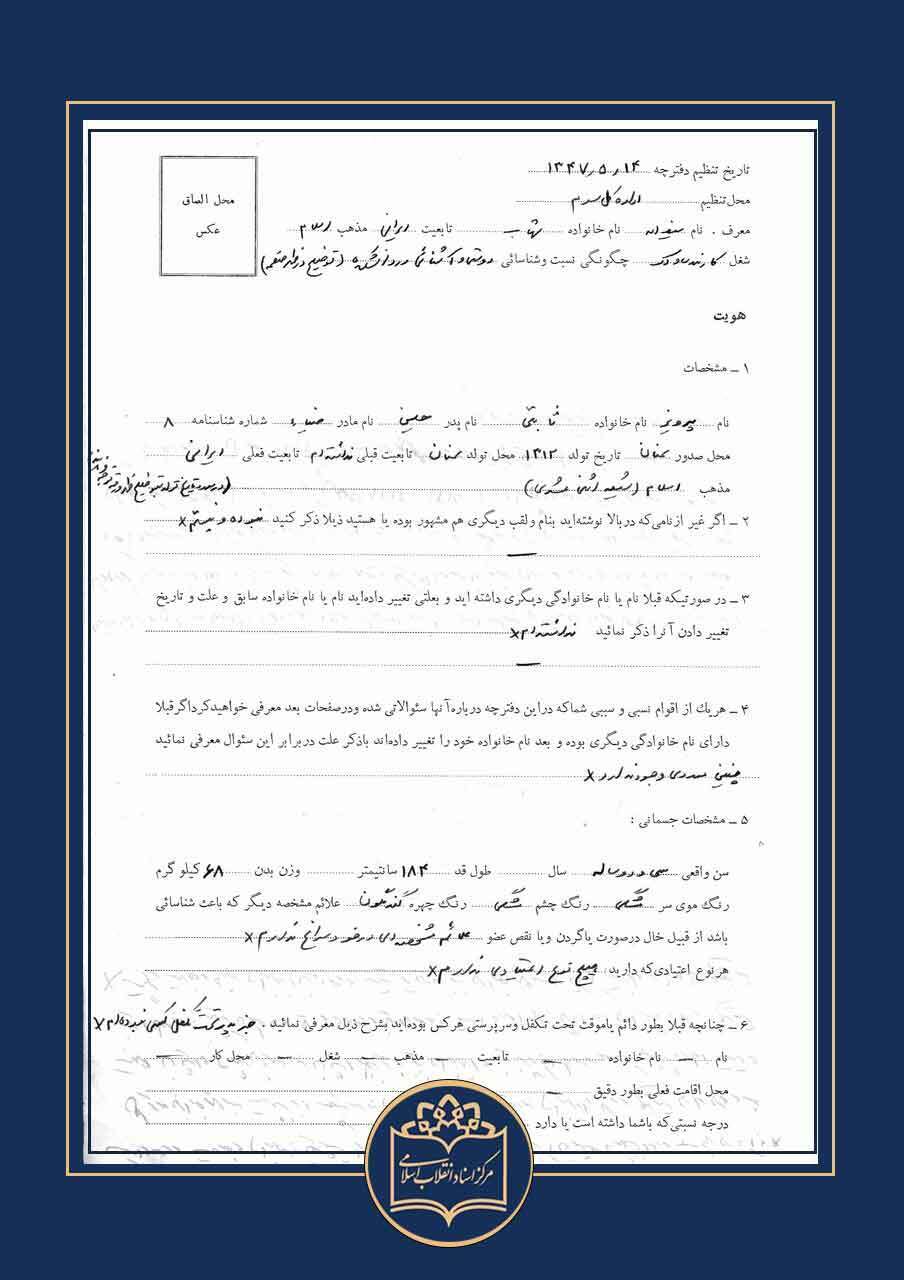 تاریخ تنظیم دفترچه ۱۴ر۵ر۱۳۴۷
محل تنظیم اداره کل سوم
معرف . نام نام خانواده تابعیت ایرانی مذهب اسلام
شغل کارمند ساواک چگونگی نسبت وشناسائی دوستی و آشنائی در دانشکده
محل الصاق
عکس
هویت
۱ ــ مشخصات
نام پرویز نام خانواده ثابتی نام پدر حسین نام مادر ضیاء شماره شناسنامه ۸
محل صدور سمنان تاریخ تولد ۱۳۱۲ محل تولد سمنان تابعیت قبلی نداشته‌ام تابعیت فعلی ایرانی
مذهب اسلام (شیعه اثنی عشری)
۲ ــ اگر غیر از نامی‌که دربالا نوشته‌اید بنام ولقب دیگری هم مشهور بوده یا هستید ذیلا ذکر کنید نبوده و نیستم x
۳ ــ در صورتیکه قبلا نام یا نام خانوادگی دیگری داشته اید و بعلتی تغییر داده‌اید نام یا نام خانواده سابق و علت و تاریخ
تغییر دادن آنرا ذکر نمائید نداشته‌ام x
۴ ــ هریك از اقوام نسبی و سببی شماکه دراین دفترچه درباره‌آنها سئوالاتی شده ودرصفحات بعد معرفی خواهیدکرداگرقبلا
دارای نام خانوادگی دیگری بوده و بعد نام خانواده خود را تغییر داده‌اند باذکر علت دربرابر این سئوال معرفی نمائید
چنین موردی وجود ندارد x
۵ ــ مشخصات جسمانی :
سن واقعی سی و دو ساله سال طول قد ۱۸۴ سانتیمتر وزن بدن ۶۸ کیلو گرم
رنگ موی سر مشکی رنگ چشم مشکی رنگ چهره گندمگون علائم مشخصه دیگر که باعث شناسائی
باشد از قبیل خال درصورت یاگردن و یا نقص عضو علائم مشخصه‌ای در خود سراغ ندارم x
هر نوع اعتیادی‌که دارید هیچ نوع اعتیادی ندارم x
۶ ــ چنانچه قبلا بطور دائم یاموقت تحت تکفل وسرپرستی هرکس بوده‌اید بشرح ذیل معرفی نمائید . جز پدر تحت تکفل کسی نبوده‌ام x
نام نام خانواده تابعیت مذهب شغل محل کار
محل اقامت فعلی بطور دقیق
درجه نسبتی‌که باشما داشته است یا دارد
مرکز اسناد انقلاب اسلامی